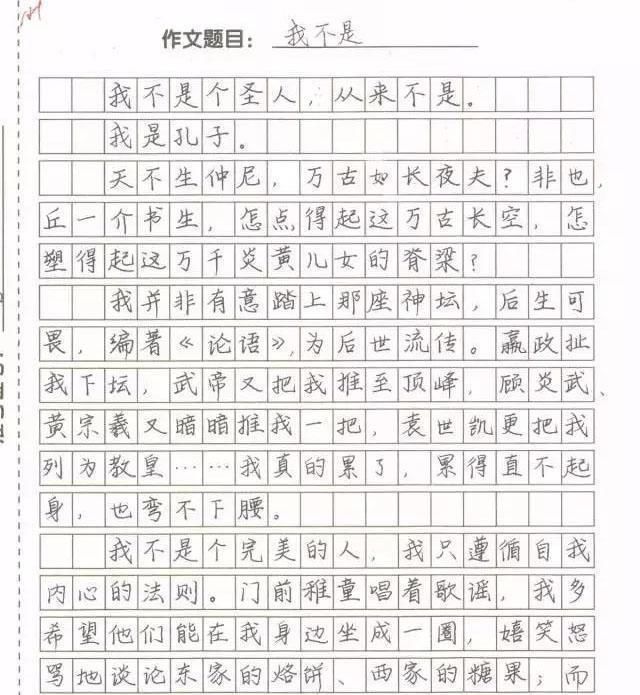 作文题目：我不是
我不是个圣人，从来不是。
我是孔子。
天不生仲尼，万古如长夜夫？非也，
丘一介书生，怎点得起这万古长空，怎
塑得起这万千炎黄儿女的脊梁？
我并非有意踏上那座神坛，后生可
畏，编著《论语》，为后世流传。嬴政扯
我下坛，武帝又把我推至顶峰，顾炎武、
黄宗羲又暗暗推我一把，袁世凯更把我
列为教皇……我真的累了，累得直不起
身，也弯不下腰。
我不是个完美的人，我只遵循自我
内心的法则。门前稚童唱着歌谣，我多
希望他们能在我身边坐成一圈，嬉笑怒
骂地谈论东家的烙饼、西家的糖果；而